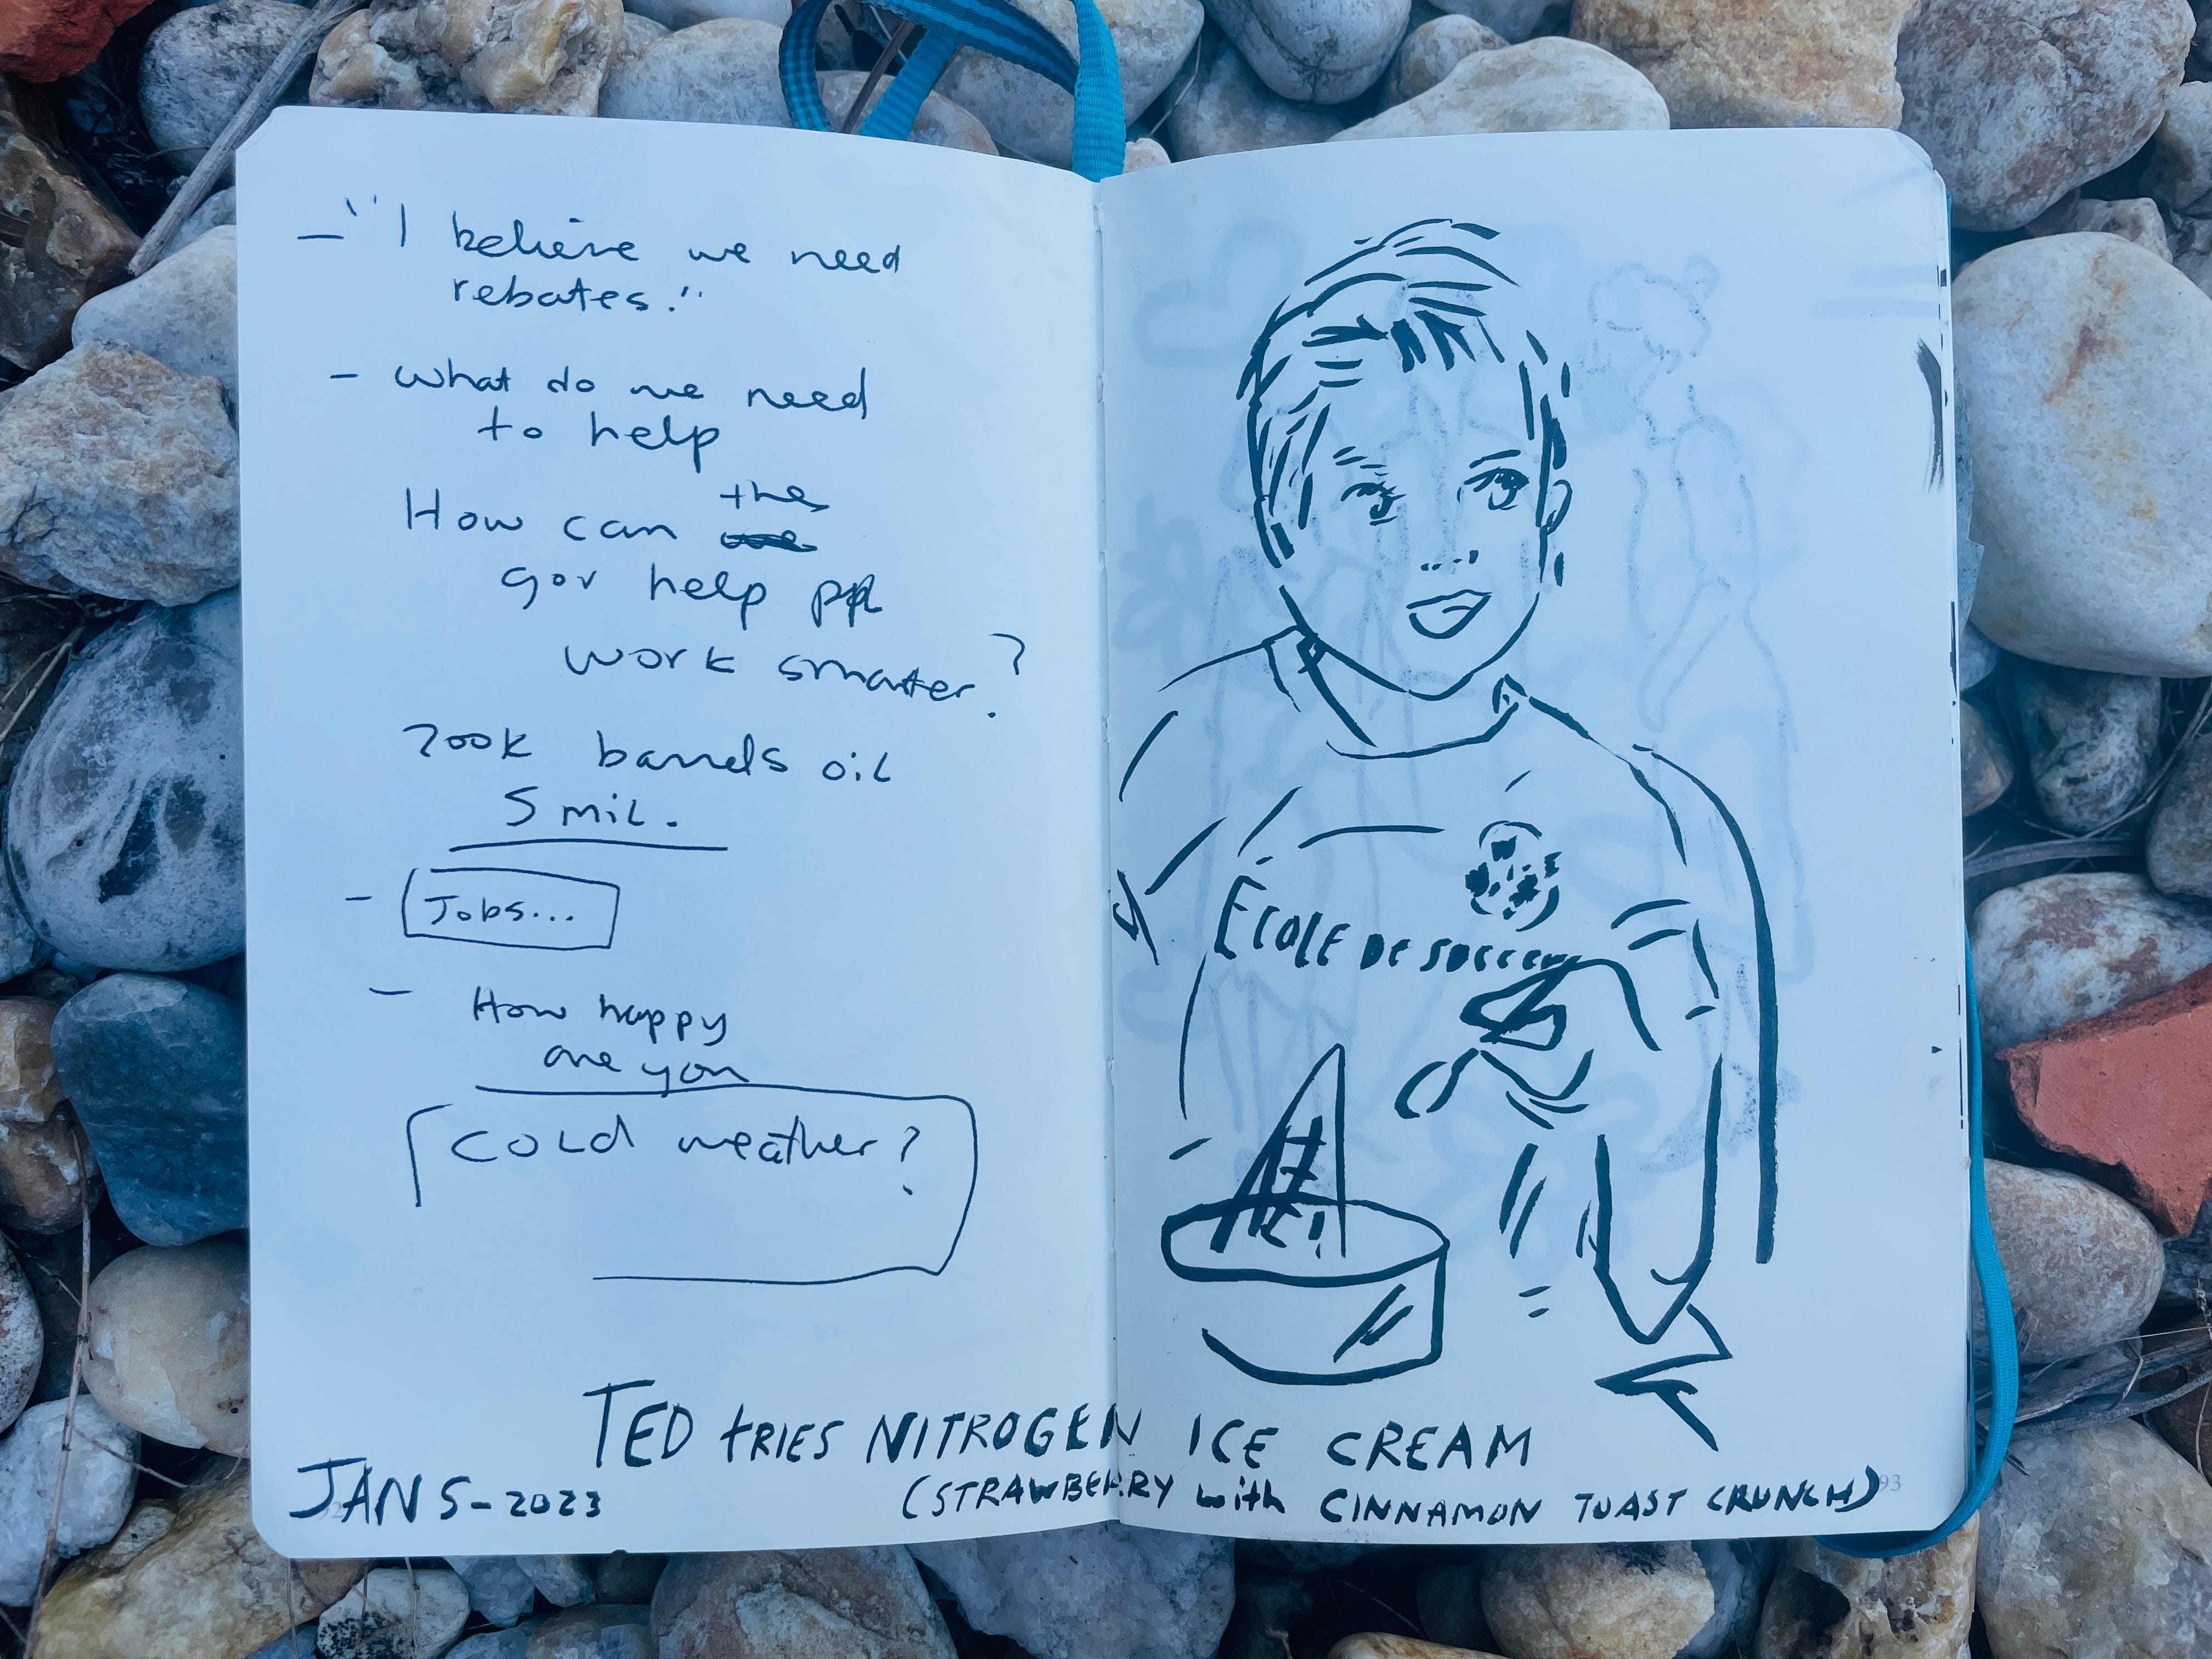 — "I believe we need
rebates."
- what do we need
to help
the
How can
gov help ppl
work smarter?
700k barrels oil
5 mil.
- Jobs...
- How happy
are you
cold weather?
ECOLE DE SOCCER
TED TRIES NITROGEN ICE CREAM
JAN 5-2023
(STRAWBERRY with CINNAMON TOAST CRUNCH)
93